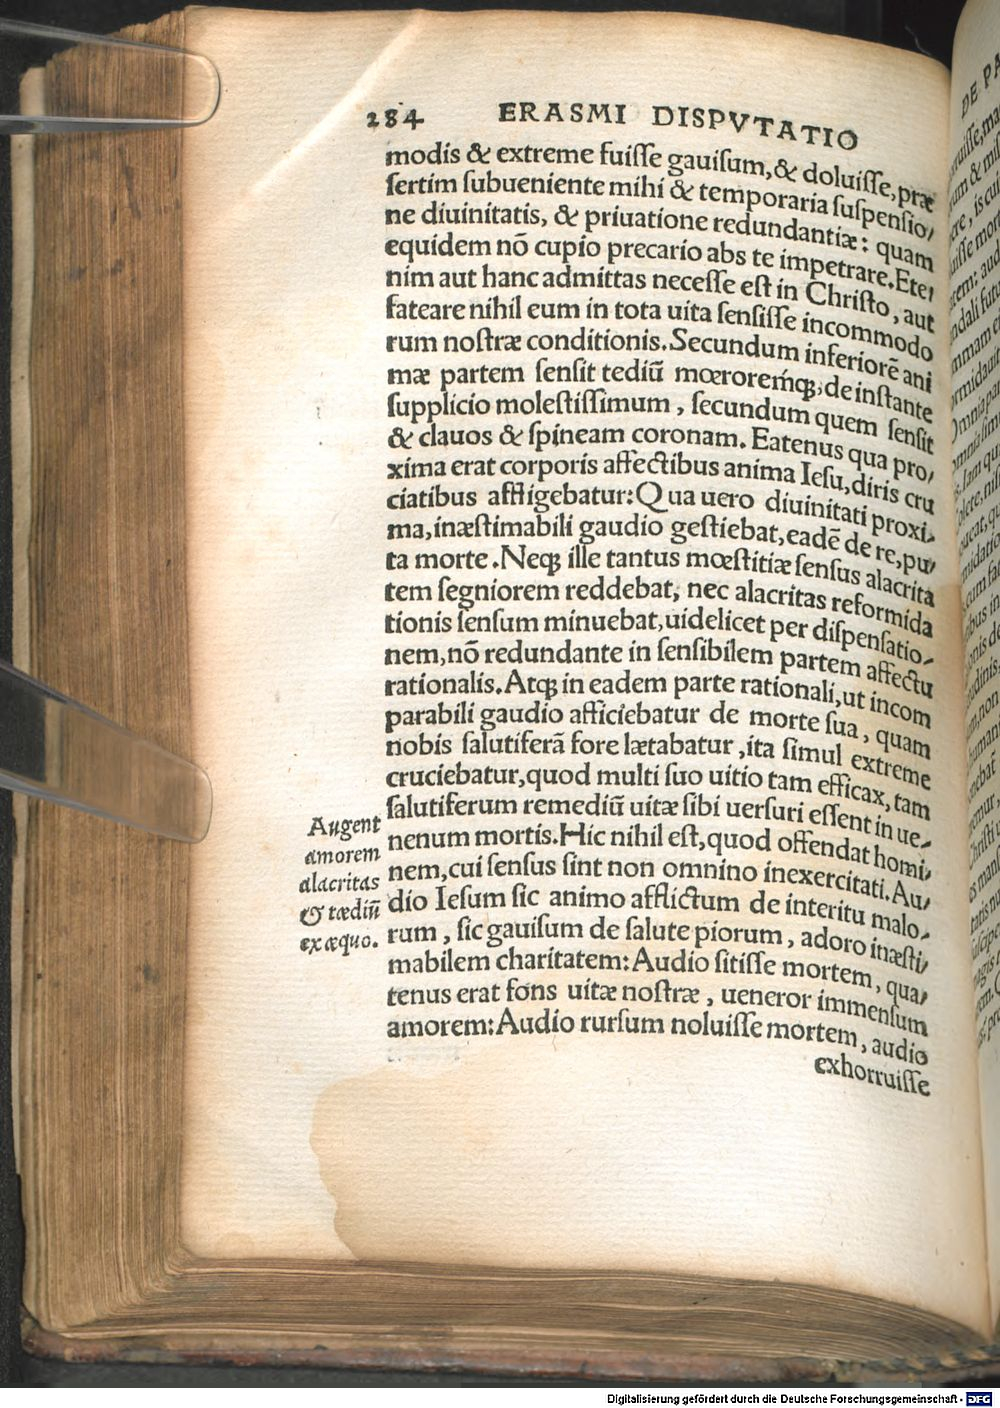 284 ERASMI DISPVTATIO
modis & extreme fuiſſe gauiſum, & doluiſſe, præ
ſertim ſubueniente mihi & temporaria ſuſpenſio/
ne diuinitatis, & priuatione redundantiæ: quam
equidem nō cupio precario abs te impetrare. Ete/
nim aut hanc admittas neceſſe eſt in Chriſto, aut
fateare nihil eum in tota uita ſenſiſſe incommodo
rum noſtræ conditionis. Secundum inferiorē ani
mæ partem ſenſit tediū mœroremq́ꝫ, de inſtante
ſupplicio moleſtiſſimum, ſecundum quem ſenſit
& clauos & ſpineam coronam. Eatenus qua pro/
xima erat corporis affectibus anima Ieſu, diris cru
ciatibus affligebatur: Qua uero diuinitati proxi/
ma, inæſtimabili gaudio geſtiebat, eadē de re, pu/
ta morte. Neqꝫ ille tantus mœſtitiæ ſenſus alacrita
tem ſegniorem reddebat, nec alacritas reformida
tionis ſenſum minuebat, uidelicet per diſpenſatio/
nem, nō redundante in ſenſibilem partem affectu
rationalis. Atqꝫ in eadem parte rationali, ut incom
parabili gaudio afficiebatur de morte ſua, quam
nobis ſalutiferā fore lætabatur, ita ſimul extreme
cruciebatur, quod multi ſuo uitio tam efficax, tam
ſalutiferum remediū uitæ ſibi uerſuri eſſent in ue/
nenum mortis. Hic nihil eſt, quod offendat homi/
nem, cui ſenſus ſint non omnino inexercitati. Au/
dio Ieſum ſic animo afflictum de interitu malo/
rum, ſic gauiſum de ſalute piorum, adoro inæſti/
mabilem charitatem: Audio ſitiſſe mortem, qua/
tenus erat fons uitæ noſtræ, ueneror immenſum
amorem: Audio rurſum noluiſſe mortem, audio
exhorruiſſe
Augent
amorem
alacritas
& tædiū
ex æquo.
DE PA
Digitalisierung gefördert durch die Deutsche Forschungsgemeinschaft - DFG